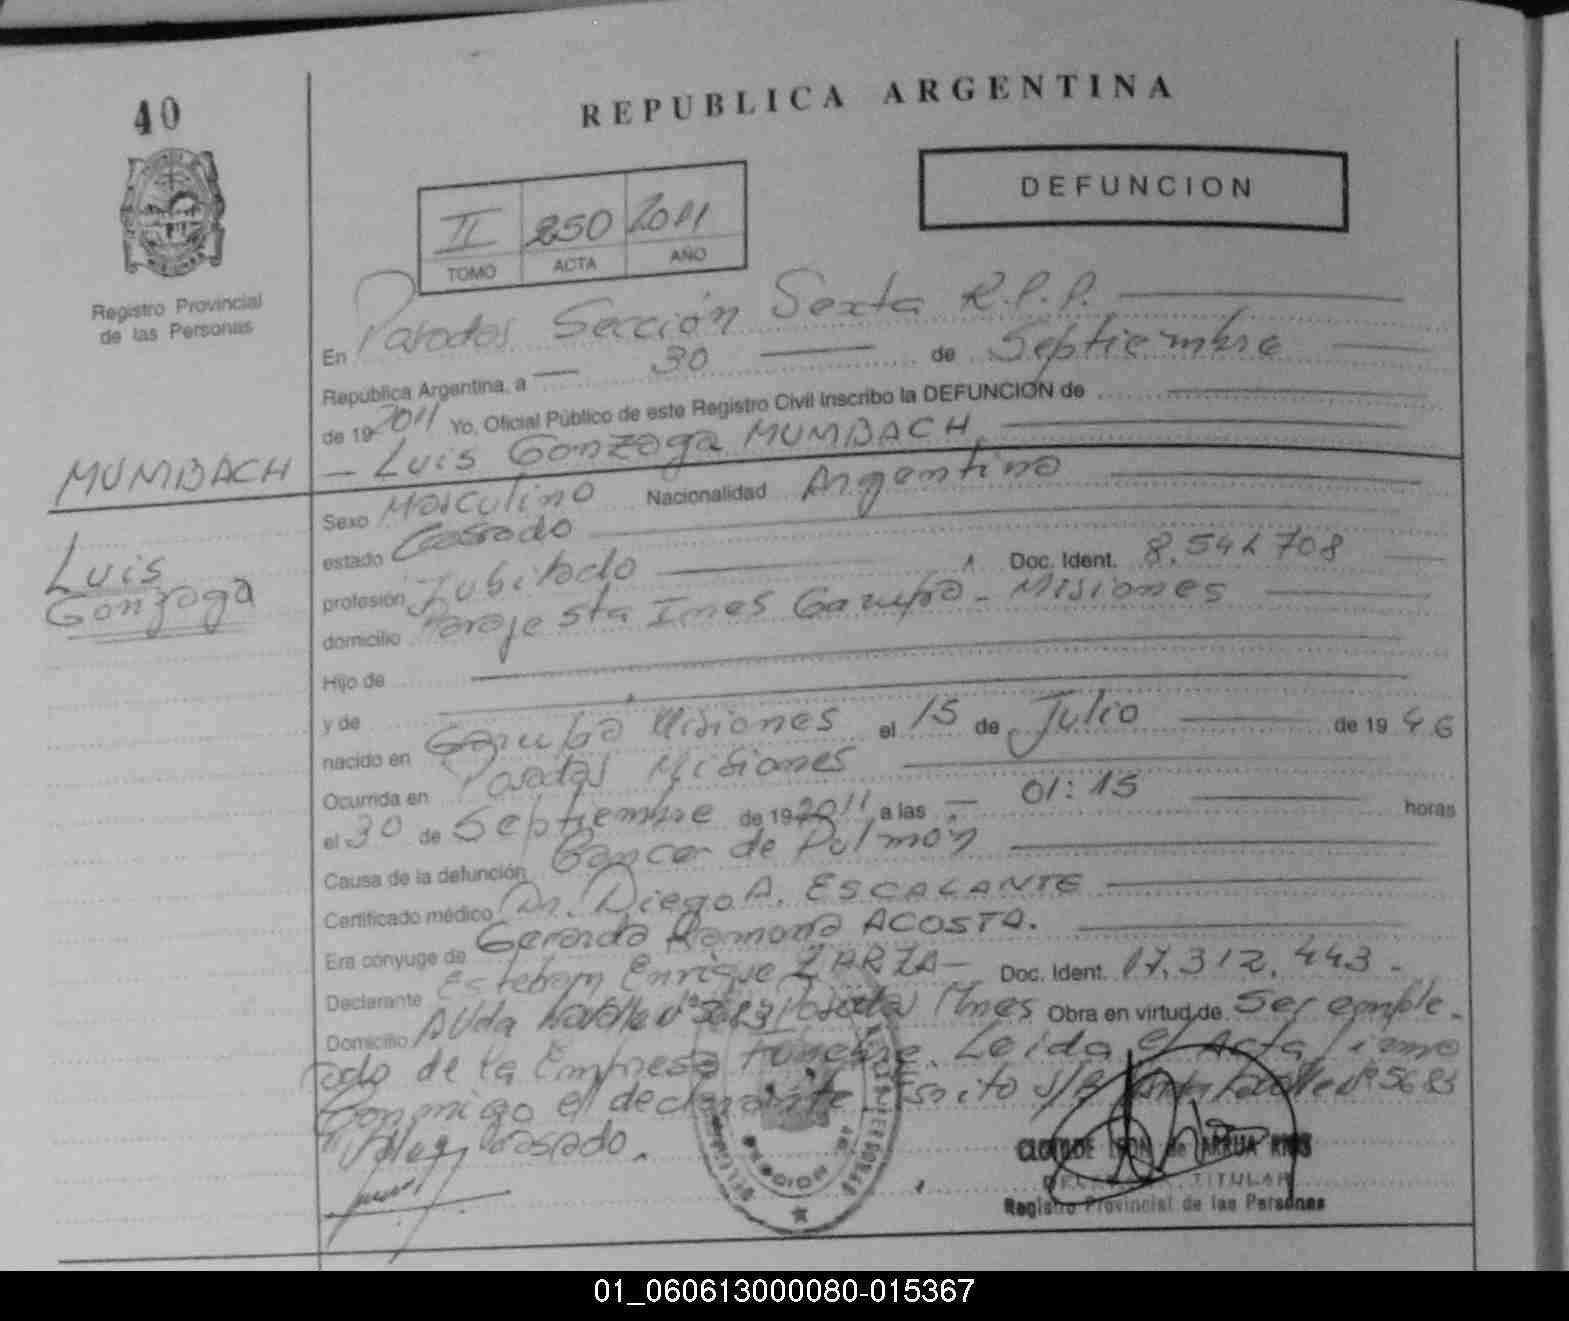 40
REPUBLICA ARGENTINA
DEFUNCION
II 250 2011
TOMO ACTA AÑO
Registro Provincial
de las Personas
En Posadas Sección Sexta R.P.P.
República Argentina, a 30 de Septiembre
de 19 2011 Yo, Oficial Público de este Registro Civil inscribo la DEFUNCION de
Luis Gonzaga MUMBACH
MUMBACH
Luis
Gonzaga
Sexo Masculino Nacionalidad Argentina
estado Casado
profesión Jubilado Doc. Ident. 8.542 708
domicilio Paraje Sta Ines Garupá - Misiones
Hijo de
y de
nacido en Garupá Misiones el 15 de Julio de 19 46
Ocurrida en Posadas Misiones
el 30 de Septiembre de 19 2011 a las 01:15 horas
Causa de la defunción Cancer de Pulmón
Certificado médico Dr. Diego A. ESCALANTE
Era cónyuge de Gerarda Ramona ACOSTA.
Declarante Esteban Enrique ZARZA - Doc. Ident. 17.312.443 -
Domicilio AVda Lavalle Nº 5683 Posadas Mnes Obra en virtud de Ser emple-
ado de la Empresa Funebre. Leida el Acta firma
Conmigo el declarante Escrito S/R Lavalle Nº 5683
Vale
CLOTILDE LEON de ARRUA RIOS
DEL TITULAR
Registro Provincial de las Personas
01_060613000080-015367